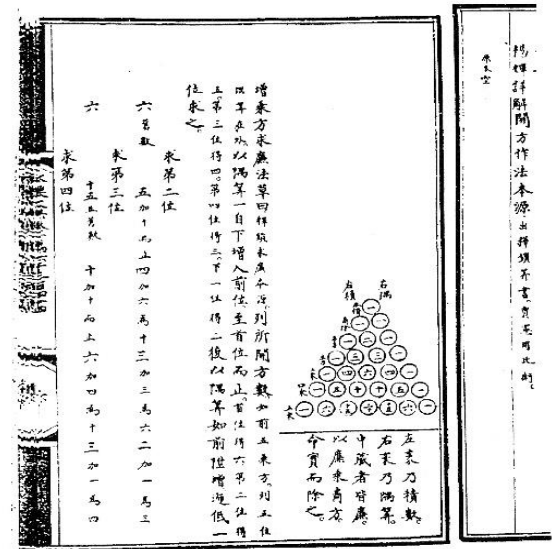 楊輝詳解開方作法本源出釋鎖算書賈憲用此術
右隅
右積
一
一 一
一 二 一
一 三 三 一
一 四 六 四 一
一 五 十 十 五 一
一 六 十五 二十 十五 六 一
左袤乃積數
右袤乃隅算
中藏者皆廉
以廉乘商方
命實而除之
增乘方求廉法草曰釋鎖求廉本源列所開方數如前五乘方列五位
隅算在外以隅算一自下增入前位至首位而止首位得六第二位得
五第三位得四第四位得三下一位得二復以隅算如前陞增遞低一
位求之
求第二位
六舊數 五加十而止 四加六為十 三加三為六 二加一為三
求第三位
六 十五並舊數 十加十而止 六加四為十 三加一為四
求第四位